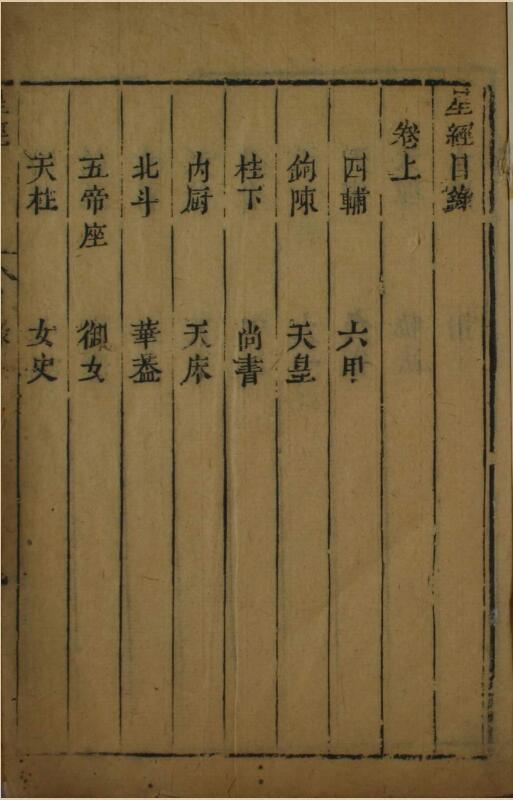 星經目錄
卷上
四輔 六甲
鉤陳 天皇
柱下 尚書
內厨 天床
北斗 華葢
五帝座 御女
天柱 女史